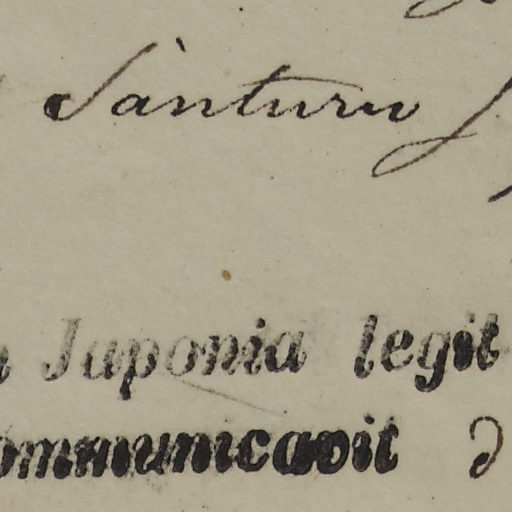 Sànturu
Japonia legit
ommunicavit